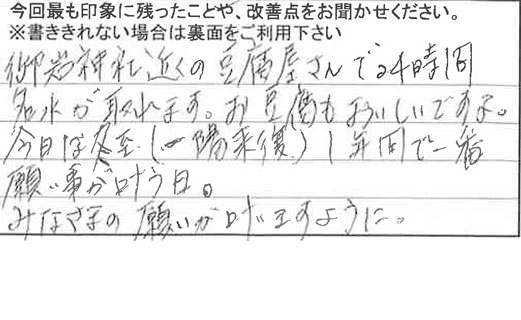 今回最も印象に残ったことや、改善点をお聞かせください。
※書ききれない場合は裏面をご利用下さい
御岩神社近くの豆腐屋さんで24時間
名水が取れます。お豆腐もおいしいですよ。
今日は冬至(一陽来復)1年間で一番
願い事が叶う日。
みなさまの願いが叶いますように。